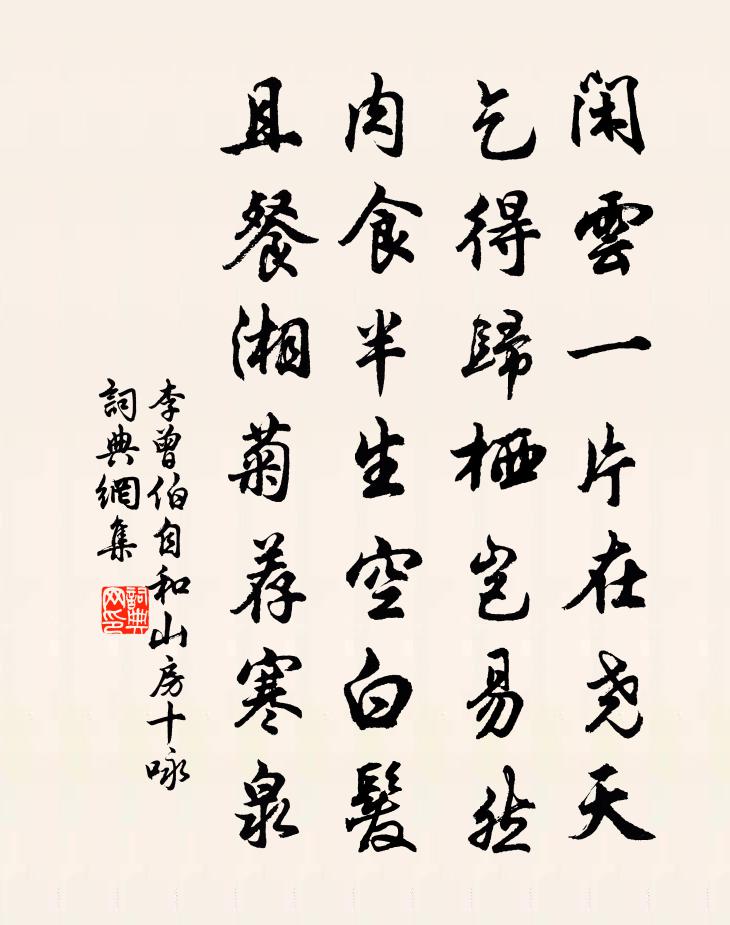 闲雲一片在尧天
乞得歸栖岂易然
肉食半生空白髮
且餐湘菊荐寒泉
李曾伯自和山房十咏
詞典網集
詞典网印